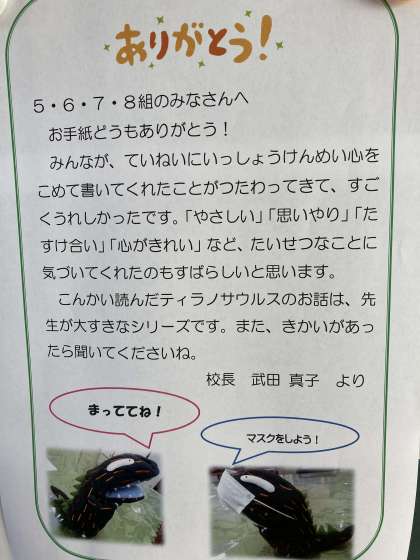 ありがとう！
５・６・７・８組のみなさんへ
お手紙どうもありがとう！
みんなが、ていねいにいっしょうけんめい心を
こめて書いてくれたことがつたわってきて、すご
くうれしかったです。「やさしい」「思いやり」「た
すけ合い」「心がきれい」など、たいせつなことに
気づいてくれたのもすばらしいと思います。
こんかい読んだティラノサウルスのお話は、先
生が大すきなシリーズです。また、きかいがあっ
たら聞いてくださいね。
校長　武田　真子　より
まっててね！
マスクをしよう！